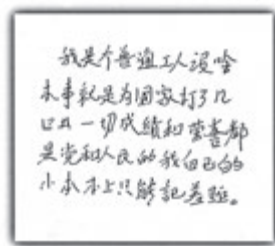 我是个普通工人没啥
本事就是为国家打了几
口井一切成绩和荣誉都
是党和人民的我自己的
小本本上只能记差距。